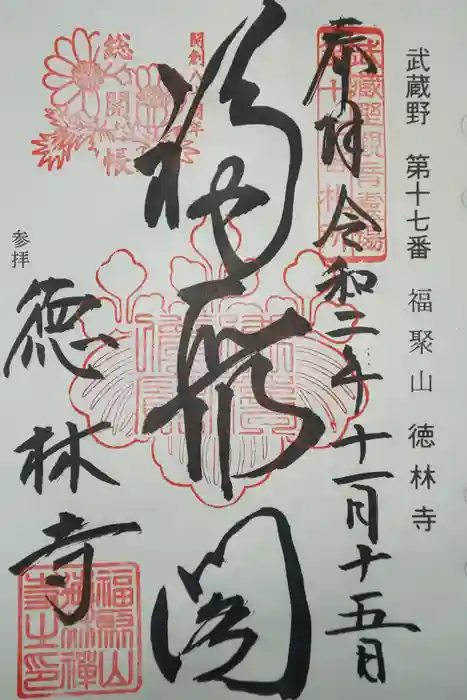 武蔵野 第十七番 福聚山 徳林寺
奉拝 令和二年十一月十五日
武蔵野観音霊場
第十七番札所
福聚閣
開創八百周年
総開帳
参拝
徳林寺
福聚山
徳林禅
寺之印